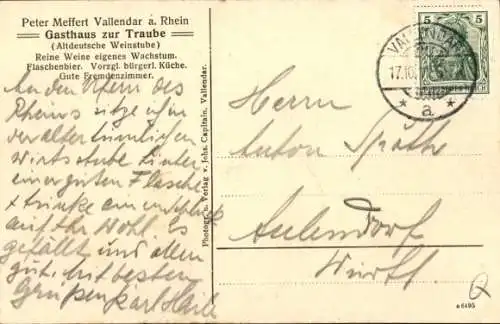 Peter Meffert Vallendar a. Rhein
Gasthaus zur Traube
(Altdeutsche Weinstube)
Reine Weine eigenes Wachstum.
Flaschenbier. Vorzgl. bürgerl. Küche.
Gute Fremdenzimmer.
An den Ufern des
Rheins sitze ich in
der altertümlichen
Wirtsstube hinter
einer guten Flasche
& trinke ein
auf Ihr Wohl. Es
gefällt uns allen
gut. Mit besten
Grüßen Karl
Photogr. u. Verlag v. Johs. Capitain, Vallendar.
5 5
VALLENDAR
17.10.
* a *
Herrn
Anton Späthe
Aulendorf
Württ.
a 6495